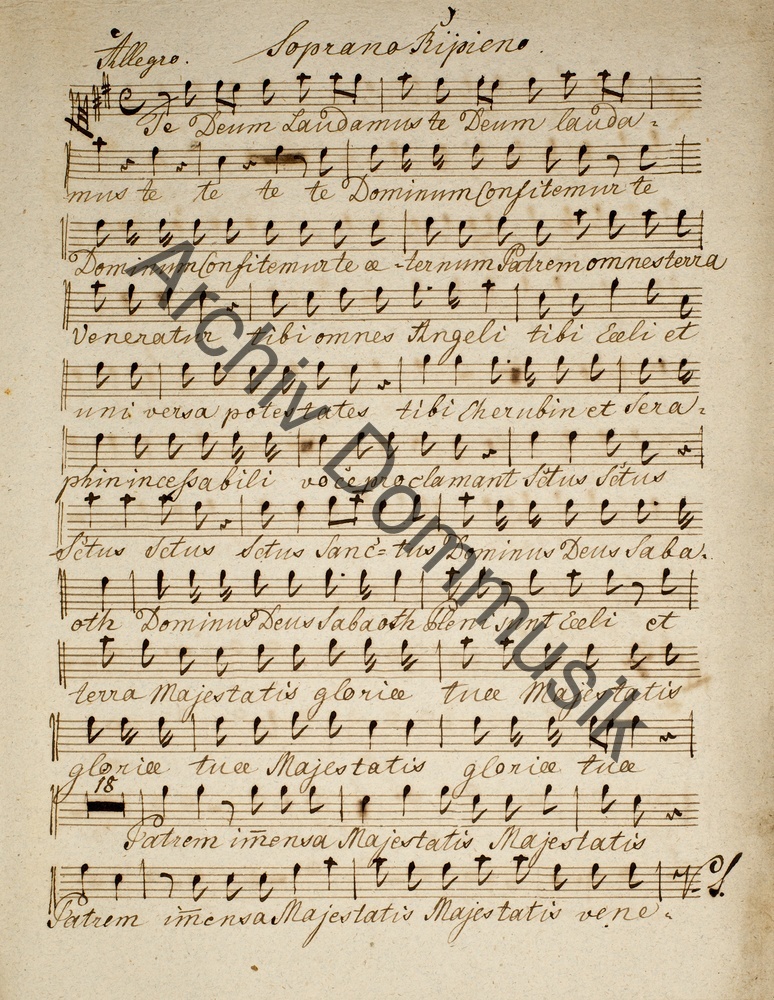 Allegro. Soprano Ripieno.
Te Deum Laudamus te Deum lauda-
mus te te te te Dominum Confitemur te
Dominum Confitemur te æ-ternum Patrem omnes terra
Veneratur tibi omnes Angeli tibi Cœli et
uni versa potestates tibi Cherubin et Sera-
phin incessabili voce proclamant Sctus Sctus
Sctus Sctus Sctus Sanc-tus Dominus Deus Saba-
oth Dominus Deus Sabaoth Pleni sunt Cœli et
terra Majestatis gloriæ tuæ Majestatis
gloriæ tuæ Majestatis gloriæ tuæ
18
Patrem im̄ensa Majestatis Majestatis
Patrem im̄ensa Majestatis Majestatis vene-
Archiv Dommusik